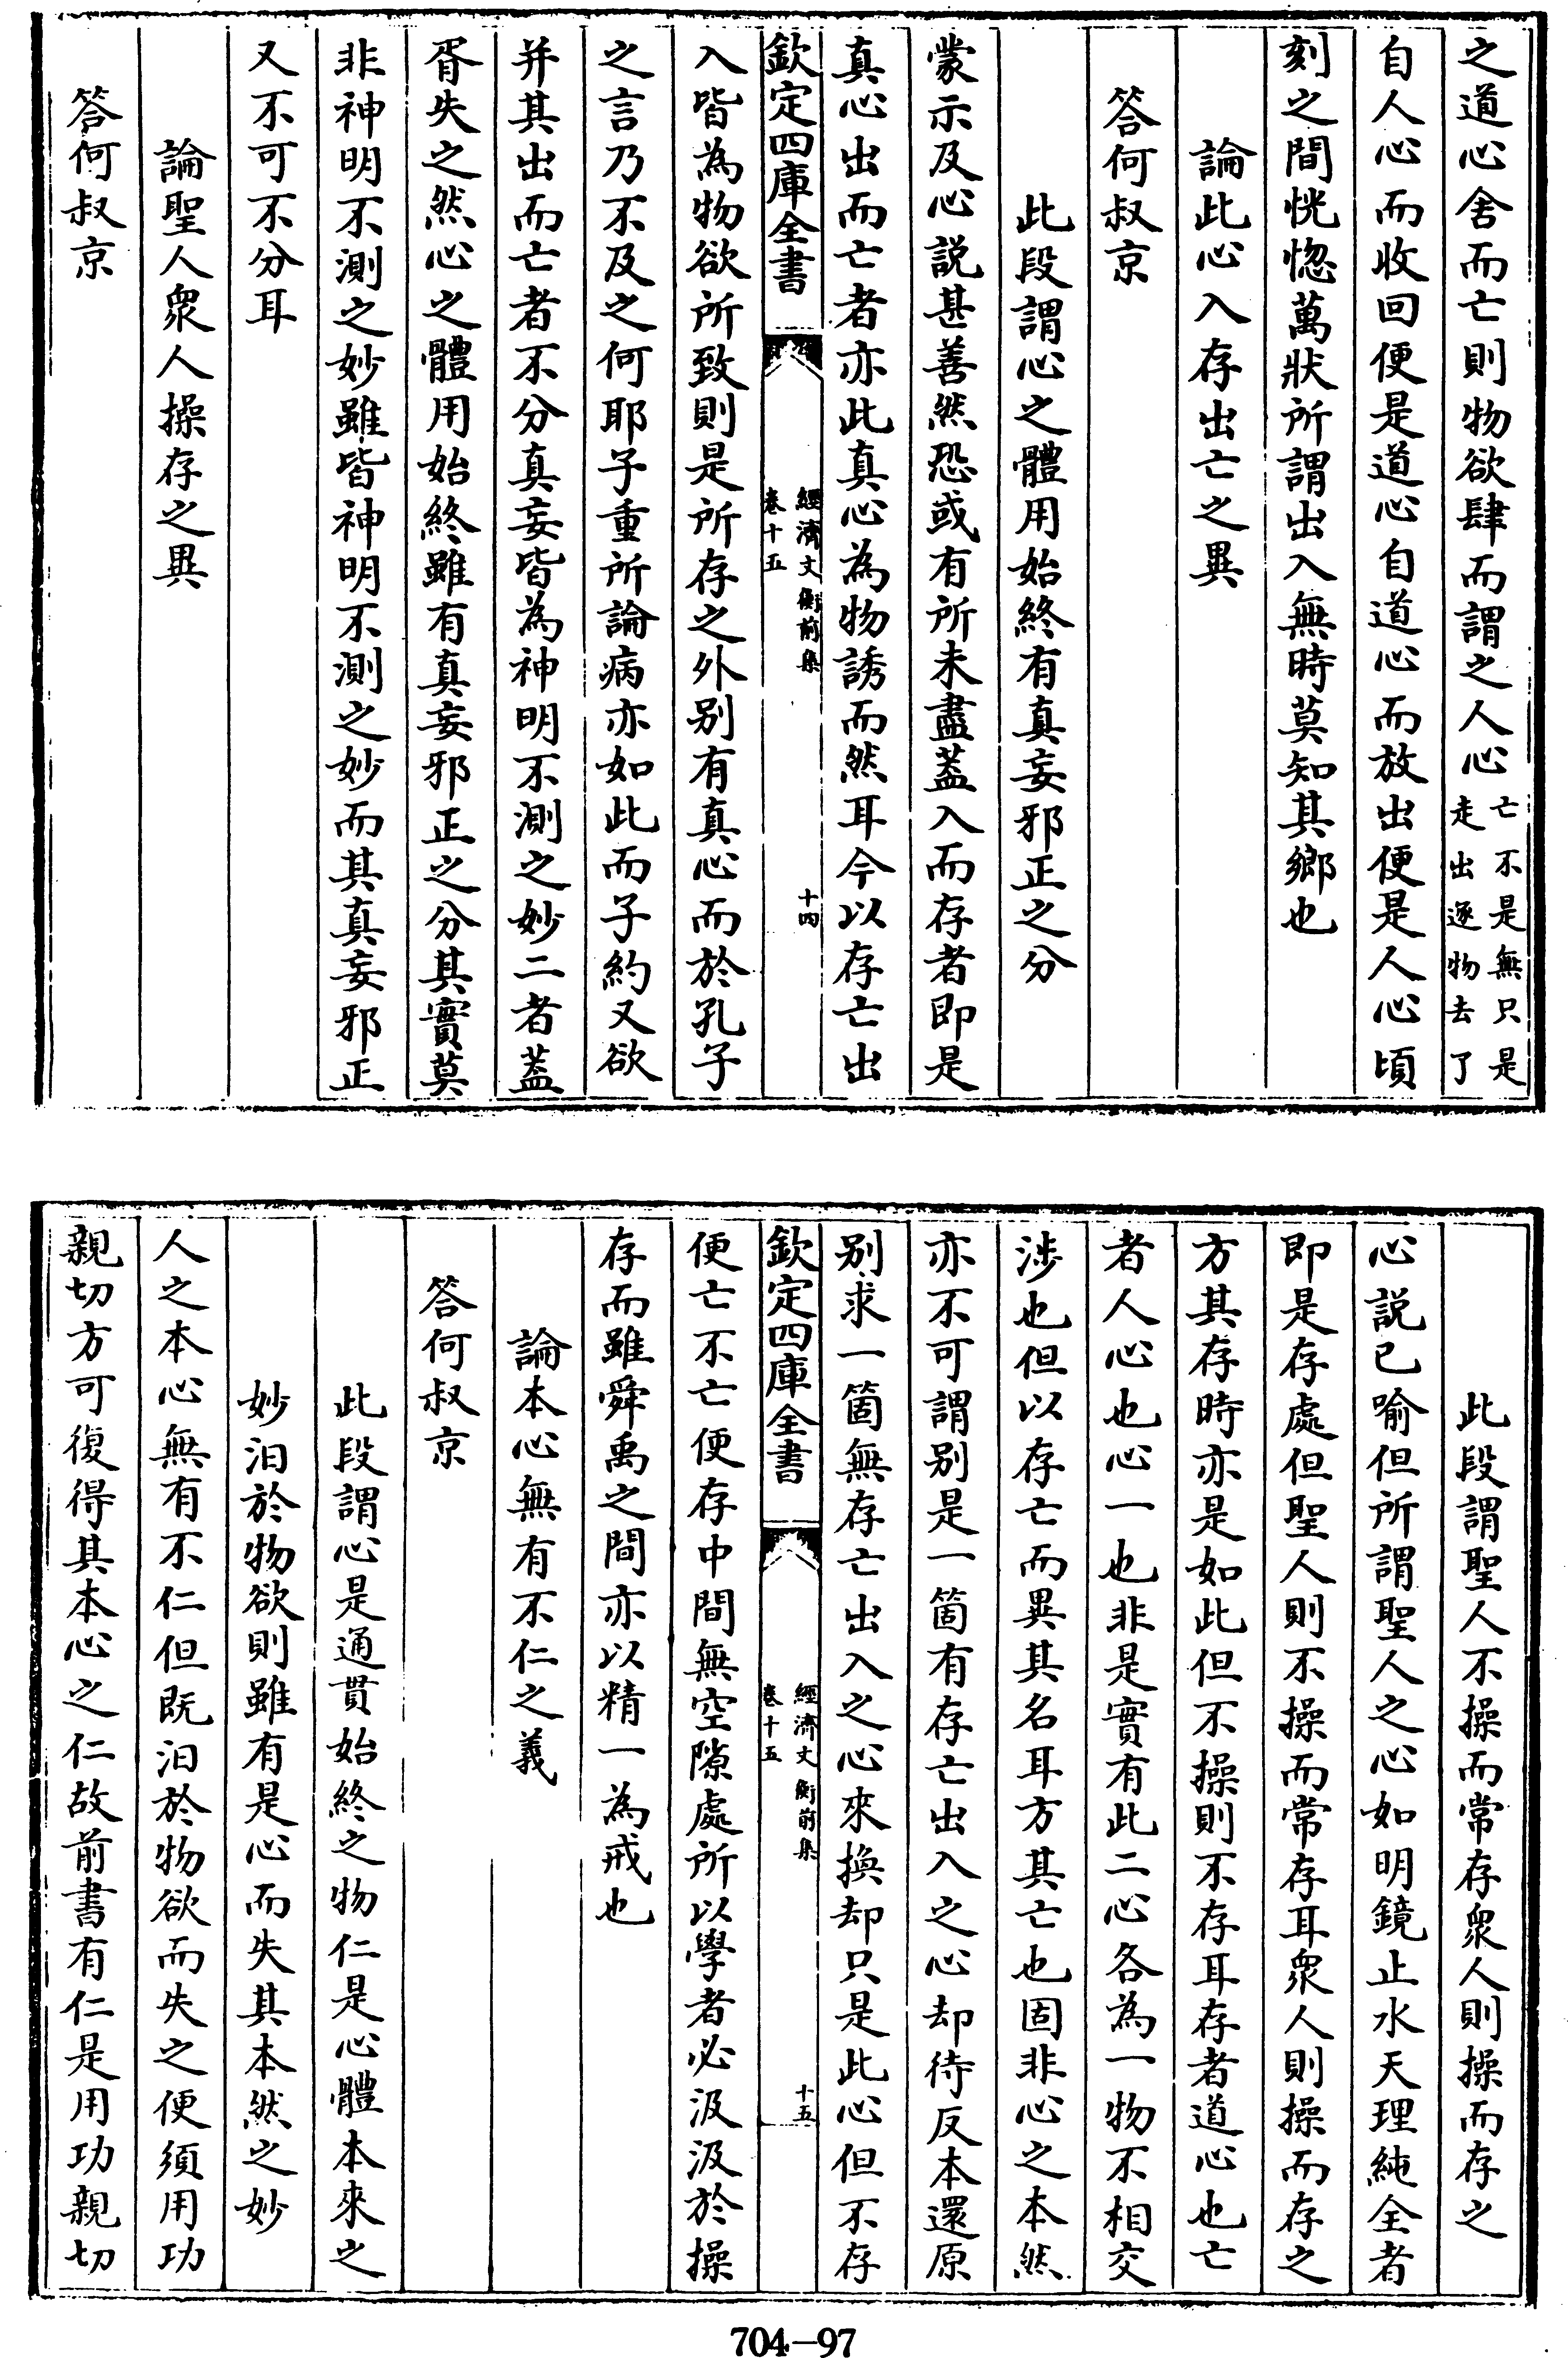 之道心舍而亡則物欲肆而謂之人心亡不是無只是走出逐物去了
自人心而收回便是道心自道心而放出便是人心頃
刻之間恍惚萬狀所謂出入無時莫知其鄉也
論此心入存出亡之異
答何叔京
此段謂心之體用始終有真妄邪正之分
蒙示及心説甚善然恐或有所未盡葢入而存者即是
真心出而亡者亦此真心為物誘而然耳今以存亡出
欽定四庫全書
經濟文衡前集
卷十五
十四
入皆為物欲所致則是所存之外别有真心而於孔子
之言乃不及之何耶子重所論病亦如此而子約又欲
并其出而亡者不分真妄皆為神明不測之妙二者葢
胥失之然心之體用始終雖有真妄邪正之分其實莫
非神明不測之妙雖皆神明不測之妙而其真妄邪正
又不可不分耳
論聖人衆人操存之異
答何叔京
此段謂聖人不操而常存衆人則操而存之
心説已喻但所謂聖人之心如明鏡止水天理純全者
即是存處但聖人則不操而常存耳衆人則操而存之
方其存時亦是如此但不操則不存耳存者道心也亡
者人心也心一也非是實有此二心各為一物不相交
涉也但以存亡而異其名耳方其亡也固非心之本然
亦不可謂别是一箇有存亡出入之心却待反本還原
别求一箇無存亡出入之心來換却只是此心但不存
欽定四庫全書
經濟文衡前集
卷十五
十五
便亡不亡便存中間無空隙處所以學者必汲汲於操
存而雖舜禹之間亦以精一為戒也
論本心無有不仁之義
答何叔京
此段謂心是通貫始終之物仁是心體本來之
妙汩於物欲則雖有是心而失其本然之妙
人之本心無有不仁但既汩於物欲而失之便須用功
親切方可復得其本心之仁故前書有仁是用功親切
704-97